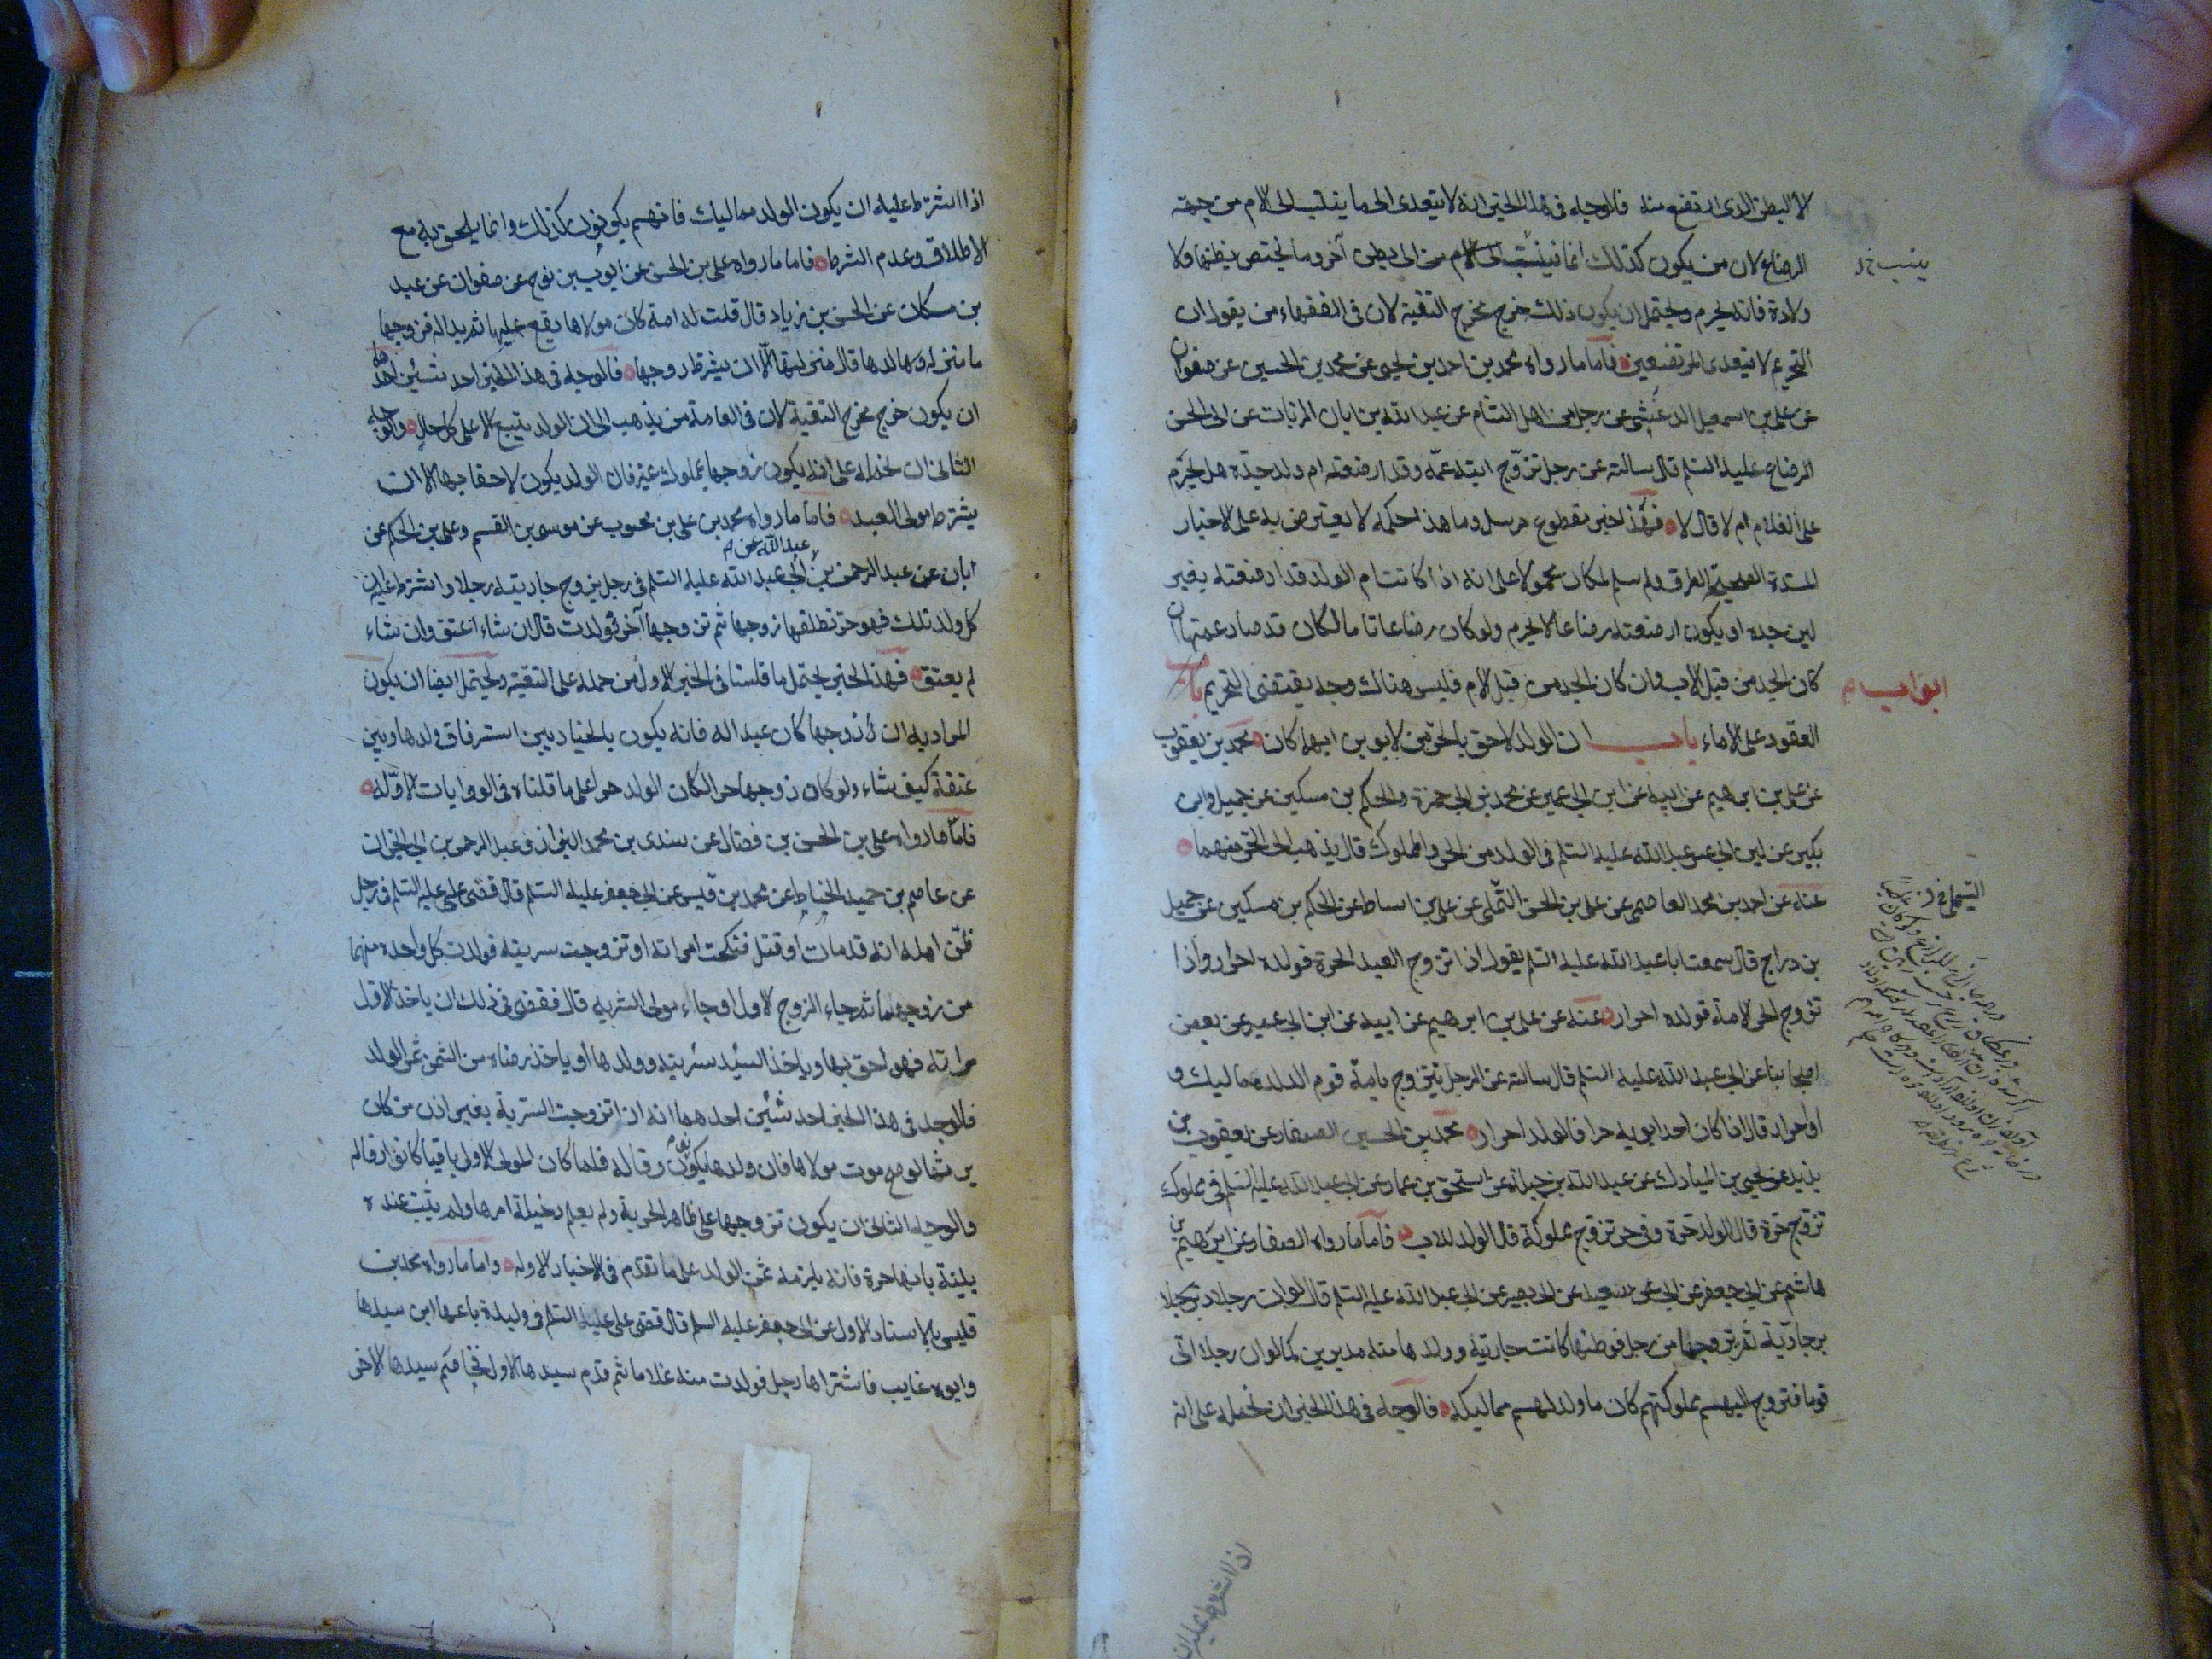 الا البطن الذى ارتضع منه فالوجه فى هذا الخبر انه لا يتعدى الى ما ينتسب الى الام من جهة
الرضاع لان من يكون كذلك انما ينتسب الى الام من الى بطن آخر وما يختص ببطنها ولا
ولادة فانه يحرم ويحتمل ان يكون ذلك خرج مخرج التقية لان فى الفقهاء من يقول ان
التحريم لا يتعدى المرتضعين فاما ما رواه محمد بن احمد بن يحيى عن محمد بن الحسين عن صفوان
عن على بن اسمعيل الدغشى عن رجل من اهل الشام عن عبد الله بن ابان الزيات عن ابى الحسن
الرضا عليه السلم قال سالته عن رجل تزوج ابنة عمه وقد ارضعته ام ولد جده هل يحرم
على الغلام ام لا قال لا فهذا خبر مقطوع مرسل وما هذا حكمه لا يعترض به على الاخبار
المسندة الصحيحة الطرق ولو سلم لكان محمولا على انه اذا كانت ام الولد قد ارضعته بغير
لبن جده او يكون ارضعته رضاعا لا يحرم ولو كان رضاعا تاما لكان قد صار عمتها ان
كان الجد من قبل الاب وان كان الجد من قبل الام فليس هناك وجه يقتضى التحريم
ابواب
العقود على الاماء باب ان الولد لاحق بالحر من الابوين ايهما كان محمد بن يعقوب
عن على بن ابرهيم عن ابيه عن ابن ابى عمير عن محمد بن ابى حمزة والحكم بن مسكين عن جميل وابن
بكير عن ابى عبد الله عليه السلم فى الولد من الحر والمملوكة قال يذهب الى الحر منهما
عنه عن احمد بن محمد العاصمى عن على بن الحسن التيملى عن على بن اسباط عن الحكم بن مسكين عن جميل
بن دراج قال سمعت ابا عبد الله عليه السلم يقول اذا تزوج العبد الحرة فولده احرار واذا
تزوج الحر الامة فولده احرار عنه عن على بن ابرهيم عن ابيه عن ابن ابى عمير عن بعض
اصحابنا عن ابى عبد الله عليه السلم قال سالته عن الرجل يتزوج بامة قوم الولد مماليك و
او احرار قال اذا كان احد ابويه حرا فالولد احرار محمد بن الحسين الصفار عن يعقوب بن
يزيد عن يحيى بن المبارك عن عبد الله بن جبلة عن اسحق بن عمار عن ابى عبد الله عليه السلم فى مملوك
تزوج حرة قال الولد حرة وفى حر تزوج مملوكة قال الولد للاب فاما ما رواه الصفار عن ابرهيم بن
هاشم عن ابى جعفر عن ابى سعيد عن ابى بصير عن ابى عبد الله عليه السلم قال لو ان رجلا دبر
جارية ثم زوجها من رجل فوطئها كانت جاريته وولدها منه مدبرين كما لو ان رجلا اتى
قوما فتزوج اليهم مملوكتهم كان ما ولد لهم مماليك فالوجه فى هذا الخبر ان نحمله على انه
اذا اشترط عليه ان يكون الولد مماليك فانهم يكونون كذلك وانما يلحق به مع
الاطلاق وعدم الشرط فاما ما رواه على بن الحسن عن ايوب بن نوح عن صفوان عن عبد
بن مسكان عن الحسن بن زياد قال قلت له امة كان مولاها يقع عليها ثم بدا له فزوجها
ما منزلة ولدها قال منزلتها الا ان يشترط زوجها فالوجه فى هذا الخبر احد شيئين احدهما
ان يكون خرج مخرج التقية لان فى العامة من يذهب الى ان الولد يتبع الام على كل حال والوجه
الثانى ان نحمله على انه يكون زوجها مملوك غيره فان الولد يكون لاحقا بها الا ان
يشترط مولى العبد فاما ما رواه محمد بن على بن محبوب عن موسى بن القسم وعلى بن الحكم عن
ابان عن عبد الرحمن بن ابى عبد الله عن ابى عبد الله عليه السلم فى رجل يزوج جاريته رجلا واشترط عليه ان
كل ولد تلده فهو حر فطلقها زوجها ثم تزوجها آخر فولدت قال ان شاء اعتق وان شاء
لم يعتق فهذا الخبر يحتمل ما قلناه فى الخبر الاول من حمله على التقية ويحتمل ايضا ان يكون
المراد به ان زوجها كان عبدا له فانه يكون بالخيار بين استرقاق ولدها وبين
عتقه كيف شاء ولو كان زوجها حرا لكان الولد حرا على ما قلناه فى الروايات الاولة
فاما ما رواه على بن الحسن بن فضال عن سندى بن محمد البزاز وعبد الرحمن بن ابى نجران
عن عاصم بن حميد الحناط عن محمد بن قيس عن ابى جعفر عليه السلم قال قضى على عليه السلم فى رجل
ظن اهله انه قد مات او قتل فنكحت امراته او تزوجت سريته فولدت كل واحدة منهما
من زوجهما ثم جاء الزوج الاول او جاء مولى السرية قال فقضى فى ذلك ان ياخذ الاول
امراته فهو احق بها وياخذ السيد سريته وولدها او ياخذ رضاه من الثمن ثمن الولد
فالوجه فى هذا الخبر احد شئين احدهما انه اذا تزوجت السرية بغير اذن من كان
يرثها لو صح موت مولاها فان ولدها يكون رقا له فلما كان المولى الاول باقيا كانوا رقا له
والوجه الثانى ان يكون تزوجها على ظاهر الحرية ولم يعلم دخيلة امرها ولم يثبت عنده
بينة بانها حرة فانه يلزمه ثمن الولد على ما تقدم فى الاخبار الاوله واما ما رواه محمد بن
قيس بالاسناد الاول عن ابى جعفر عليه السلم قال قضى على عليه السلم فى وليدة باعها ابن سيدها
وابوه غايب فاشتراها رجل فولدت منه غلاما ثم قدم سيدها الاول فخاصم سيدها الاخر